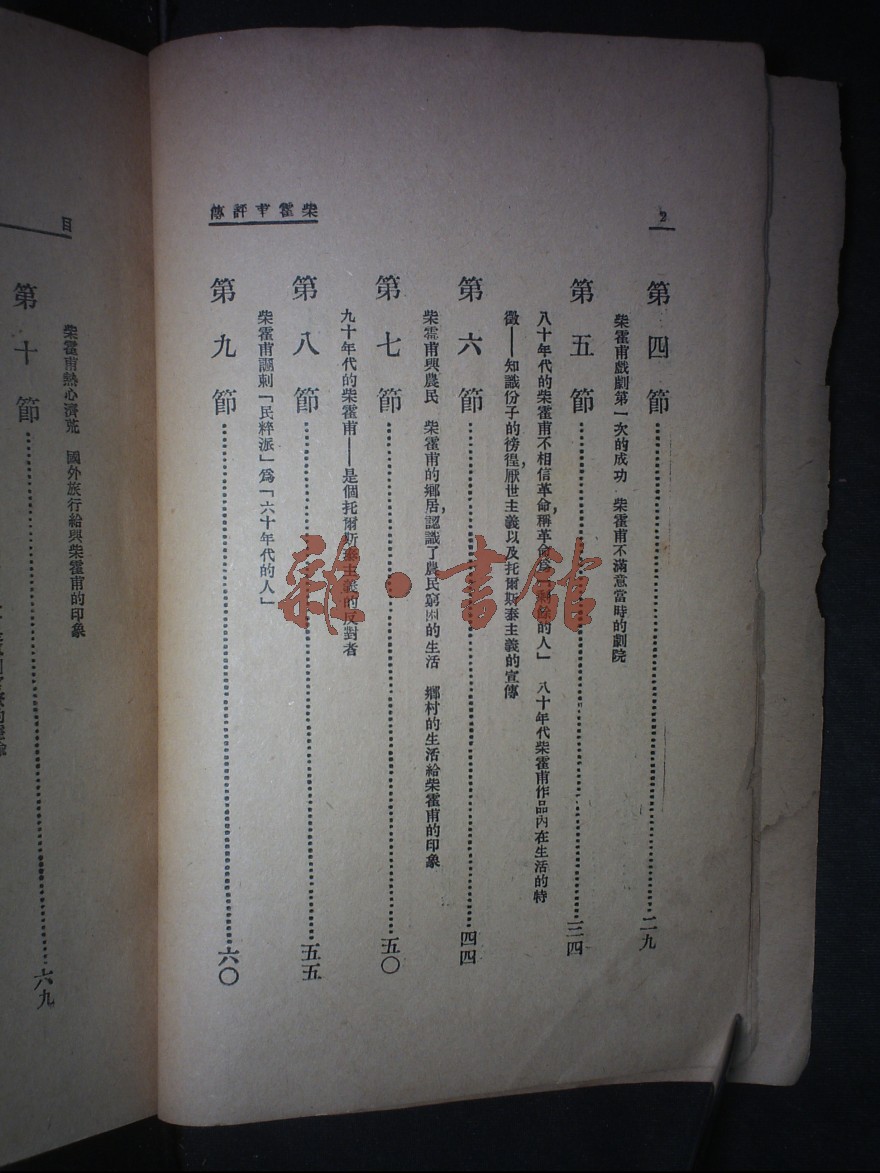 2
柴霍甫評傳
第四節……二九
柴霍甫戲劇第一次的成功　柴霍甫不滿意當時的劇院
第五節……三四
八十年代的柴霍甫不相信革命，稱革命為「剩餘的人」　八十年代柴霍甫作品內在生活的特
徵——知識份子的徬徨，厭世主義以及托爾斯泰主義的宣傳
第六節……四四
柴霍甫與農民　柴霍甫的鄉居，認識了農民窮困的生活　鄉村的生活給柴霍甫的印象
第七節……五〇
九十年代的柴霍甫——是個托爾斯泰主義的反對者
第八節……五五
柴霍甫諷刺「民粹派」爲「六十年代的人」
第九節……六〇
目
柴霍甫熱心濟荒　國外旅行給與柴霍甫的印象
第十節……六九
雜·書館